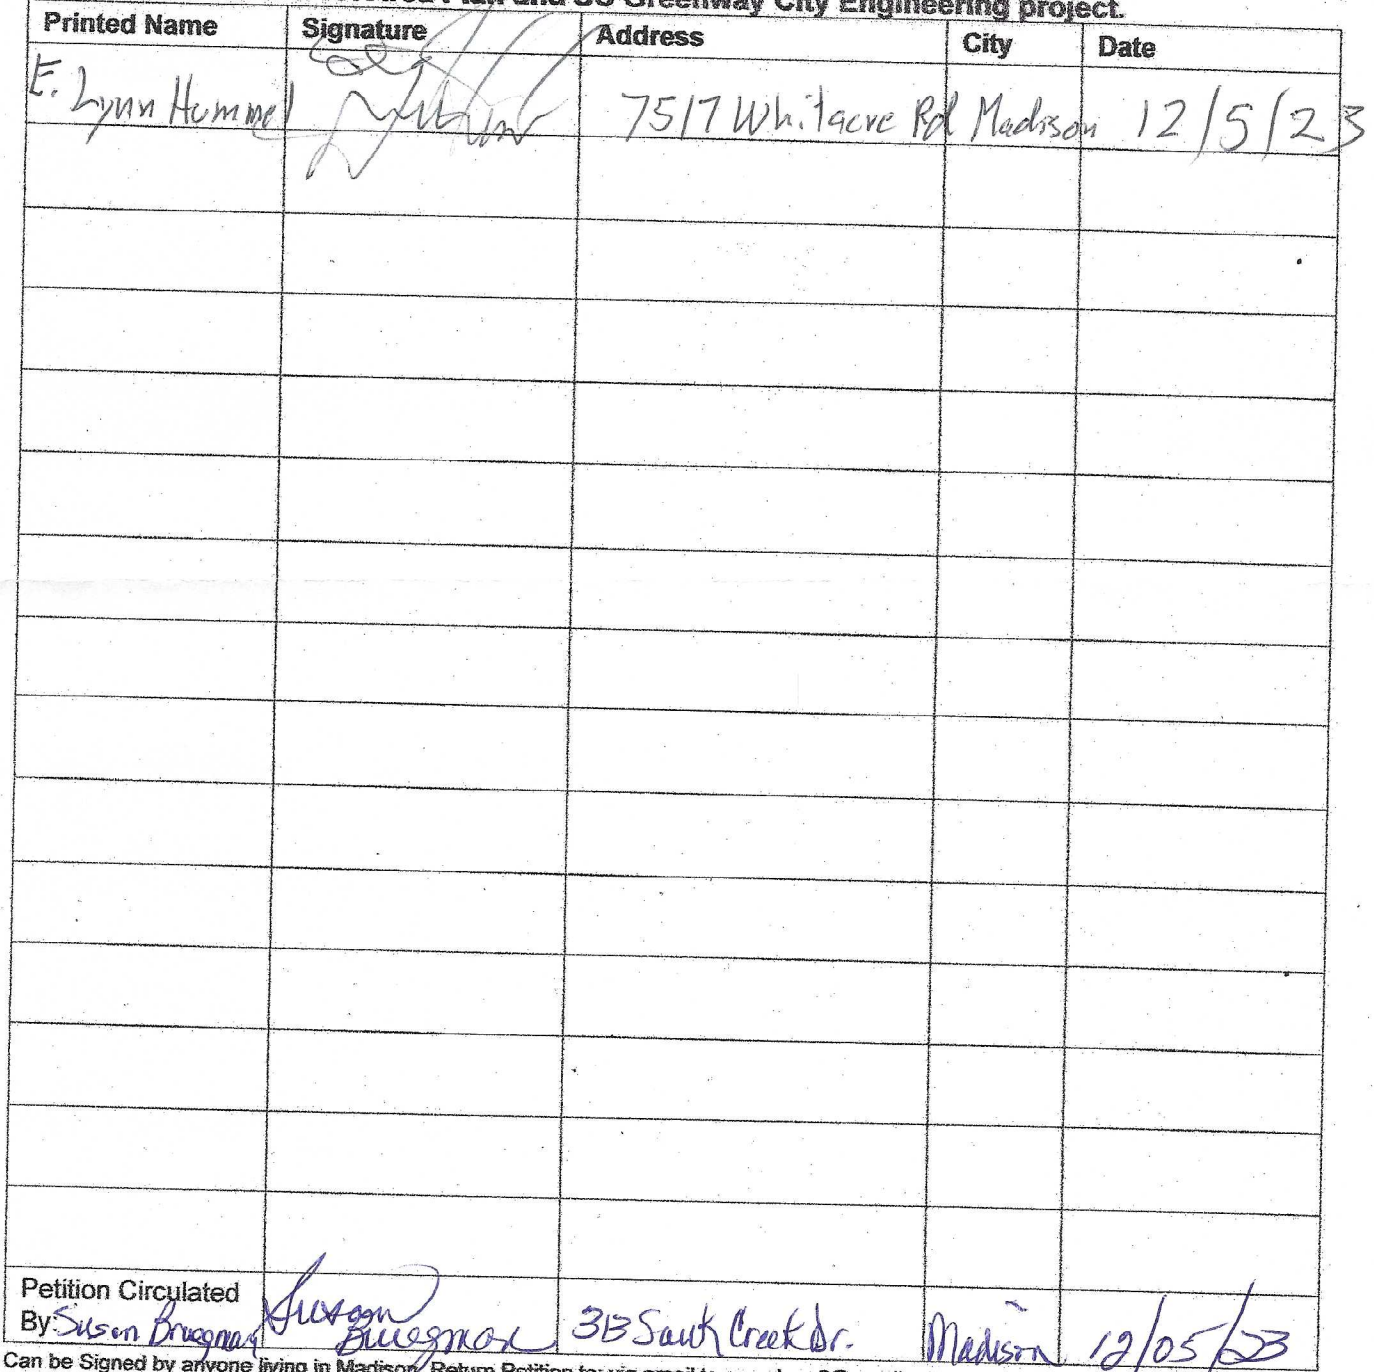 Plan and SC Greenway City Engineering project.
Printed Name Signature Address City Date
E. Lynn Hummel 7517 Whitacre Rd Madison 12/5/23
Petition Circulated
By: Susan Bruegman Susan Bruegman 313 Sauk Creek Dr. Madison 12/05/23
Can be Signed by anyone living in Madison. Return Petition to: via email to